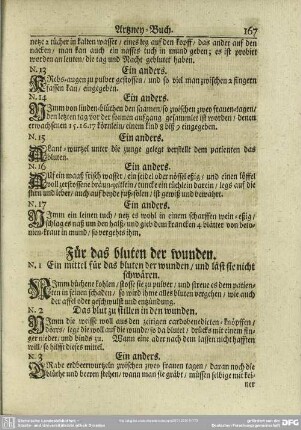 Artzney-Buch. 167
netze 2 tücher in kalten wasser / eines leg auf den kopff / das ander auf den
nacken / man kan auch ein nasses tuch in mund geben; es ist probiert
worden an leuten / die tag und Nacht geblutet haben.
N. 13 Ein anders.
Krebs-augen zu pulver gestossen / und so viel man zwischen 2 fingern
fassen kan / eingegeben.
N. 14 Ein anders.
Nimm von linden-blüthen den saamen so zwischen zwey frauen-tagen /
den letzten tag vor der sonnen aufgang gesammlet ist worden / denen
erwachsenen 15. 16. 17 körnlein / einem kind 9 biß 7 eingegeben.
N. 15 Ein anders.
wurzel unter die zunge gelegt verstellt dem patienten das
bluten.
N. 16 Ein anders.
Auf ein maaß frisch wasser / ein seidel oder nössel eßig / und einen löffel
voll zerstossene braun- / tunck ein tüchlein darein / legs auf die
stirn und leber / auch auf beyde fußsolen / ist gewiß und bewährt.
N. 17 Ein anders.
Nimm ein leinen tuch / netz es wohl in einem scharffen wein-eßig /
schlag es naß um den halß / und gieb dem krancken 4 blätter von
kraut in mund / so vergehts ihm.
Für das bluten der wunden.
N. 1 Ein mittel für das bluten der wunden / und läst sie nicht
schwären.
Nimm büchene kohlen / stosse sie zu pulver / und streue es dem patien-
ten in seinen schaden / so wird ihme alles bluten vergehen / wie auch
der affel oder geschwulst und entzündung.
N. 2 Das blut zu stillen in den wunden.
Nimm die weisse woll aus den zeitigen cardobenedicten / knöpffen /
dörrs / leg die woll auf die wunde / so da blutet / drücks mit einem fin-
ger nieder / und binds zu. Wann eine ader nach dem lassen nicht hafften
will / so hilfft dieses mittel.
N. 3 Ein anders.
Grabe erdbeerwurtzeln zwischen zwey frauen tagen / daran noch die
blüthe und beeren stehen / wann man sie gräbt / müssen selbige mit kei-
ner